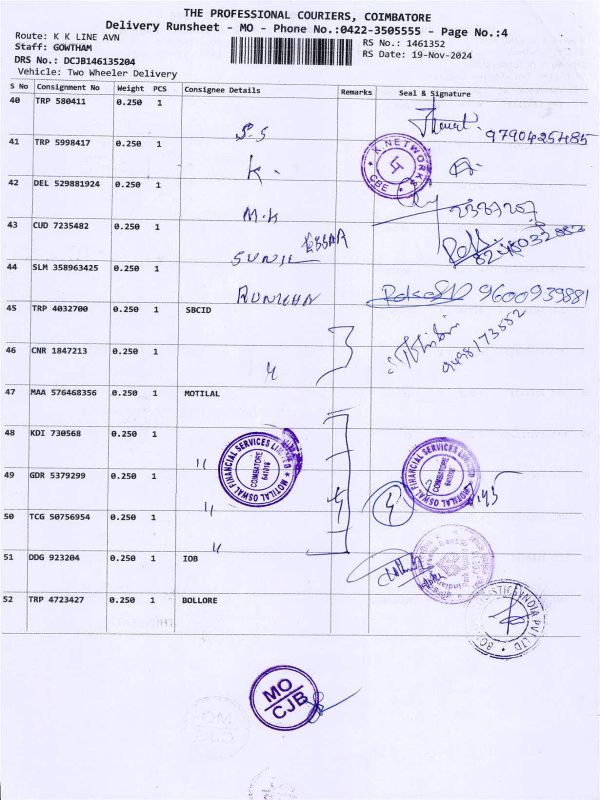 THE PROFESSIONAL COURIERS, COIMBATORE
Delivery Runsheet - MO - Phone No.:0422-3505555 - Page No.:4
Route: K K LINE AVN
RS No.: 1461352
Staff: GOWTHAM
RS Date: 19-Nov-2024
DRS No.: DCJB146135204
Vehicle: Two Wheeler Delivery
S No Consignment No Weight PCS Consignee Details Remarks Seal & Signature
40 TRP 580411 0.250 1 S.S 9790425485
41 TRP 5998417 0.250 1 K. K NETWORKS CBE
42 DEL 529881924 0.250 1 M.K
43 CUD 7235482 0.250 1 SUNIL
44 SLM 358963425 0.250 1 9600939881
45 TRP 4032700 0.250 1 SBCID
46 CNR 1847213 0.250 1 " 9498173552
47 MAA 576468356 0.250 1 MOTILAL
48 KDI 730568 0.250 1 "
MOTILAL OSWAL FINANCIAL SERVICES LIMITED COIMBATORE 641018
MOTILAL OSWAL FINANCIAL SERVICES LIMITED COIMBATORE 641018
49 GDR 5379299 0.250 1 " 4 4
50 TCG 50756954 0.250 1 "
51 DDG 923204 0.250 1 IOB
52 TRP 4723427 0.250 1 BOLLORE
INDIA PVT LTD
MO
CJB